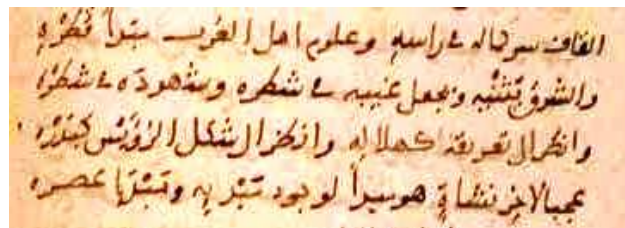 القاف سر كماله في راسه وعلوم اهل الغرب مبدأ قطره
والشوق يثنيه ويجعل غيبه في شطره وشهوده في شطره
وانظر الى تعريقه كهلاله وانظر الى شكل الرؤيس كبدره
عجبا لاخر نشاة هو مبدأ لوجود مبديه ومبدا عصره